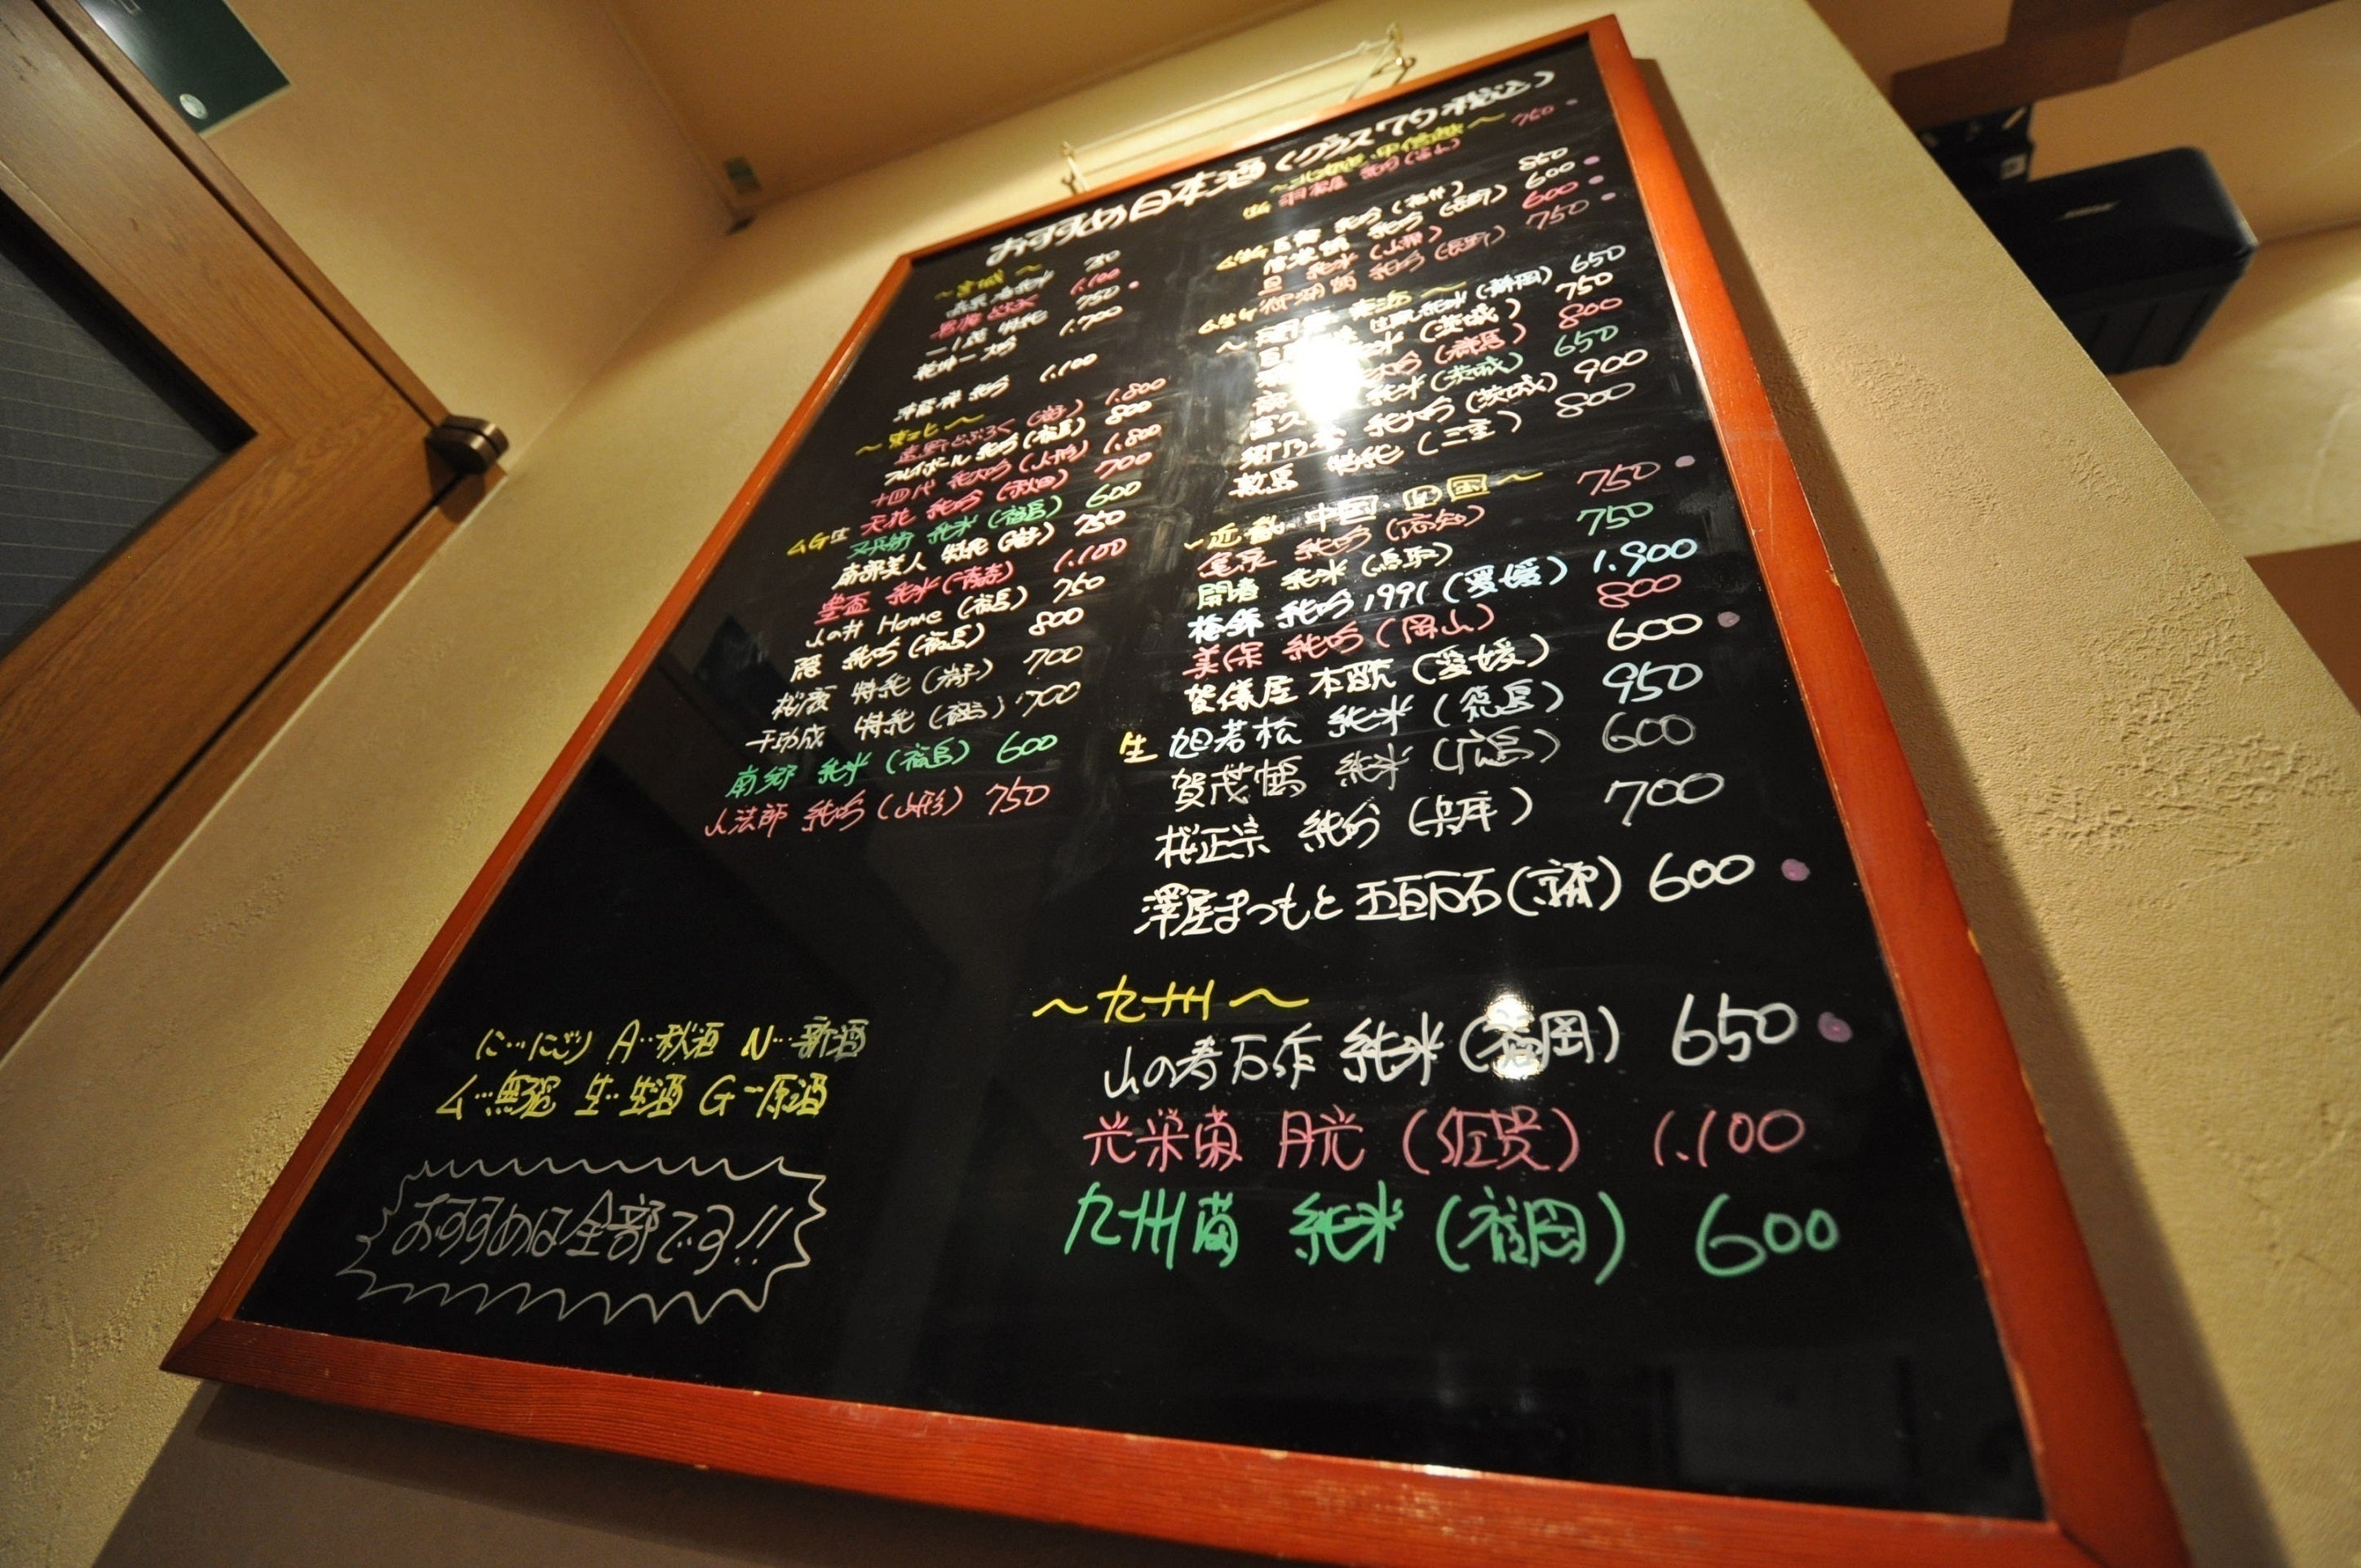 おすすめ日本酒(グラス 税込)
～宮城～
750
どぶろく 1.100
750
乾坤一 大吟 1.700
純吟 1.100
～東北～
遠野どぶろく(岩手) 1.800
純吟(福島) 800
十四代 純大吟(山形) 1.800
ムG生 天花 純吟(秋田) 700
又兵衛 純米(福島) 600
南部美人 特純(岩手) 750
豊盃 純米(青森) 1.100
山の井 Home(福島) 750
純吟(福島) 800
桜顔 特純(岩手) 700
千功成 特純(福島) 700
南郷 純米(福島) 600
山法師 純吟(山形) 750
に…にごり A…秋酒 N…新酒
ム…無濾 生…生酒 G…原酒
おすすめは全部です!!
～北陸・甲信越～
羽根屋 純吟(富山) 750
純吟(福井) 850
純吟(長野) 600
旦 純米(山梨) 600
ム生G 御湖鶴 純吟(長野) 750
純米(静岡) 650
純米(茨城) 750
大吟(群馬) 800
純米(茨城) 650
郷乃誉 純大吟(茨城) 900
特純(三重) 800
～近畿・中国・四国～
亀泉 純吟(高知) 750
純米(鳥取) 750
梅錦 純吟1991(愛媛) 1.900
美保 純吟(岡山) 800
賀儀屋 本醸(愛媛) 600
生 旭若松 純米(徳島) 950
賀茂鶴 純米(広島) 600
桜正宗 純吟(兵庫) 700
澤屋まつもと 五百万石(京都) 600
～九州～
山の寿 万作 純米(福岡) 650
光栄菊 月光(佐賀) 1.100
九州菊 純米(福岡) 600